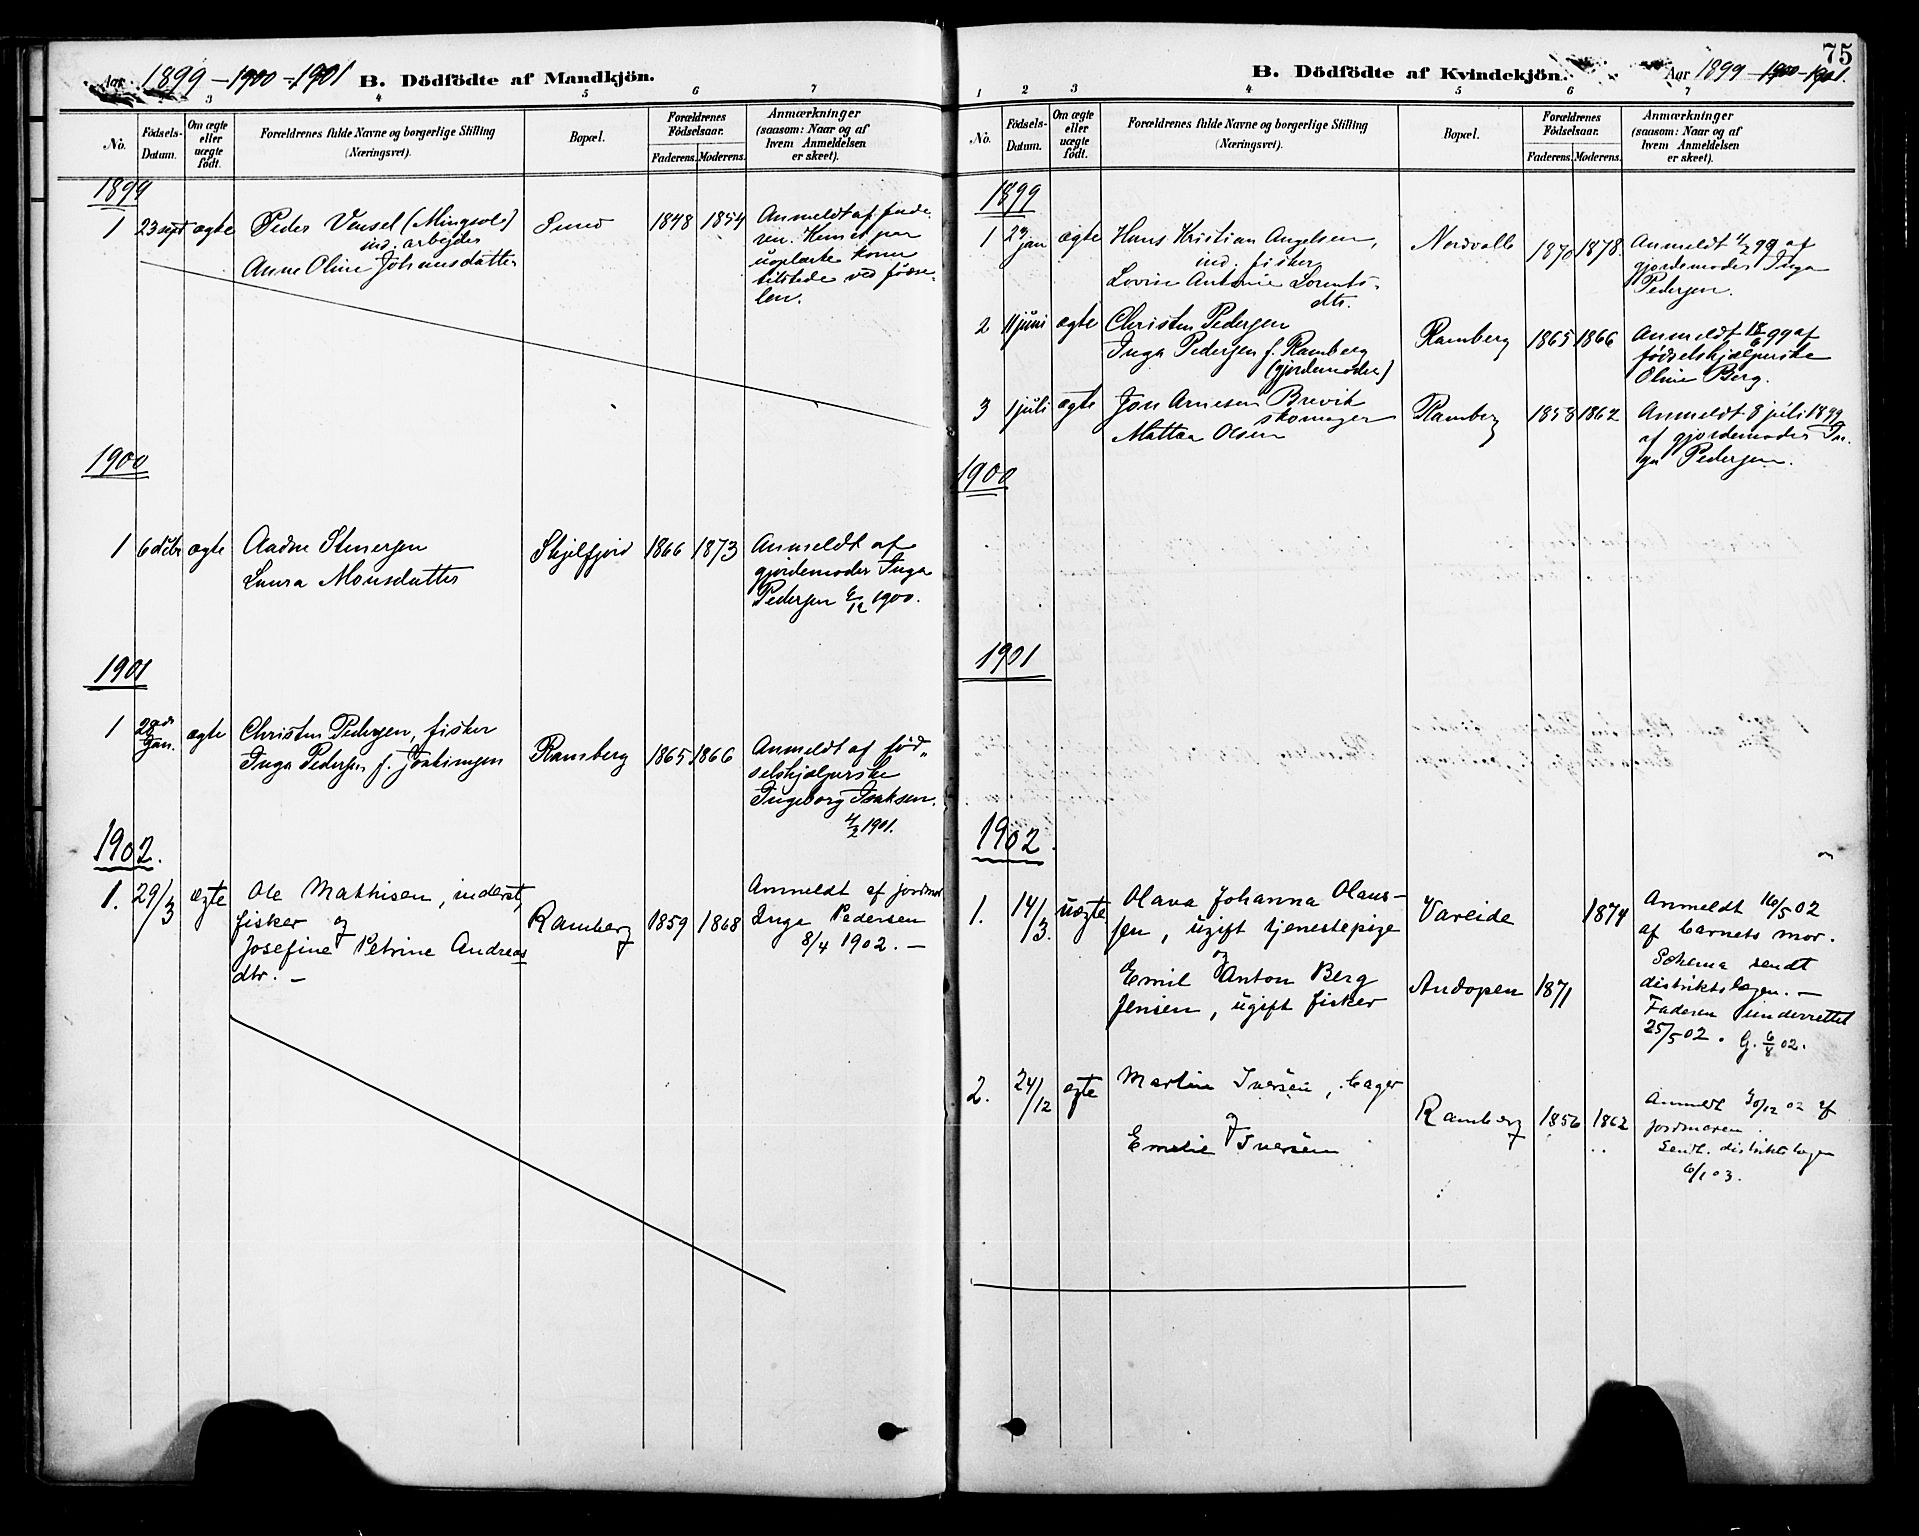 Aar 1899 - 1900 - 1901
B. Dödfödte af Mandkjön.
3 4 5 6 7
No.
Födsels-
Datum.
Om ægte
eller
uægte
födt.
Forældrenes fulde Navne og borgerlige Stilling
(Næringsvei).
Bopæl.
Forældrenes
Födselsaar.
Faderens. Moderens.
Anmærkninger
(saasom: Naar og af
hvem Anmeldelsen
er skeet).
1899
1 23 sept ægte Peder Vensel () Sund 1848 1854 Anmeldt af fade-
ind. arbejder ren.
Anne Oline Johannesdatter
tilstede ved födse-
len.
1900
1 6 dcbr ægte Aadne Stenersen Skjelfjord 1866 1873 Anmeldt af
Laura Monsdatter gjordemoder Inga
Pedersen 6/12 1900.
1901
1 28de Jan. ægte Christen Pedersen, fisker
Inga Pedersen f. Joakimsen Ramberg 1865 1866 Anmeldt af föd-
selshjælperske
Ingeborg Isaksen.
4/2 1901.
1902.
1. 29/3 ægte Ole Mathisen, inderst, Ramberg 1859 1868 Anmeldt af jordmor
fisker og Inga Pedersen
Josefine Petrine Andreas 8/4 1902. —
dtr. —
75
B. Dödfödte af Kvindekjön.
Aar 1899 - 1900 - 1901.
1 2 3 4 5 6 7
No.
Födsels-
Datum.
Om ægte
eller
uægte
födt.
Forældrenes fulde Navne og borgerlige Stilling
(Næringsvei).
Bopæl.
Forældrenes
Födselsaar.
Faderens. Moderens.
Anmærkninger
(saasom: Naar og af
hvem Anmeldelsen
er skeet).
1899
1 jan ægte Hans Kristian Angelsen, Nordvall 1870 1878. Anmeldt 99 af
ind. fisker gjordemoder Inga
Lovise Antonie Lorents- Pedersen.
dtr.
2 11 juni ægte Christen Pedersen Ramberg 1865 1866 Anmeldt 18/6 99 af
Inga Pedersen f. Ramberg födselshjælperske
(gjordemoder) Oline Berg.
3 1 juli ægte Jon Arnesen Brevik Ramberg 1858 1862 Anmeldt 8 juli 1899
skomager af gjordemoder In-
Mattea Olsen ga Pedersen.
1900
1901
1902.
1. 14/3. uægte Olava Johanna Olaus- Vareide 1874 Anmeldt 16/5 02
sen, ugift tjenestepige af barnets mor.
og Schema sendt
Emil Anton Berg Andopen 1871 distriktslægen. —
Jensen, ugift fisker Faderen underrettet
25/5 02. G. 6/8 02.
2. 24/12 ægte Martin Iversen, bager Ramberg 1856 1862 Anmeldt 30/12 02 af
og jordmoren.
Emelie Iversen Sendt distriktslægen
6/1 03.